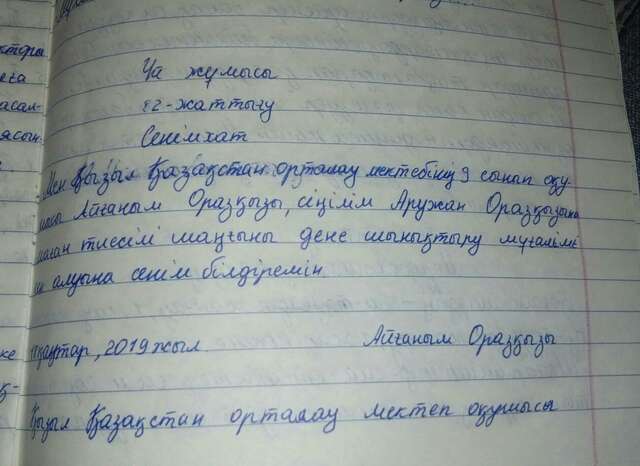 Үй жұмысы
82-жаттығу
Сенімхат
Мен Қызыл Қазақстан орталау мектебінің 9 сынып оқу
Айғаным Оразқызы, сіңілім Аружан Оразқызына
тиесілі шаңғыны дене шынықтыру мұғалімі
алуына сенім білдіремін
қаңтар, 2019 жыл Айғаным Оразқызы
Қызыл Қазақстан орталау мектеп оқушысы